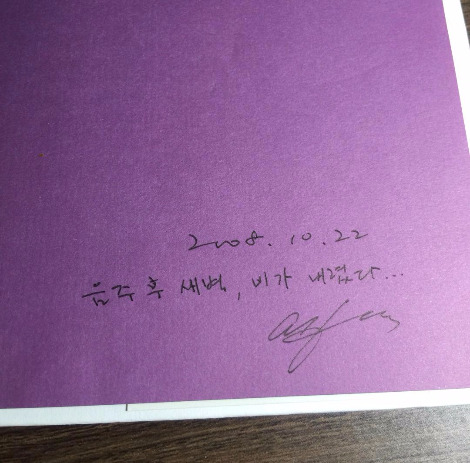 2008. 10. 22
음주 후 새벽, 비가 내렸다...